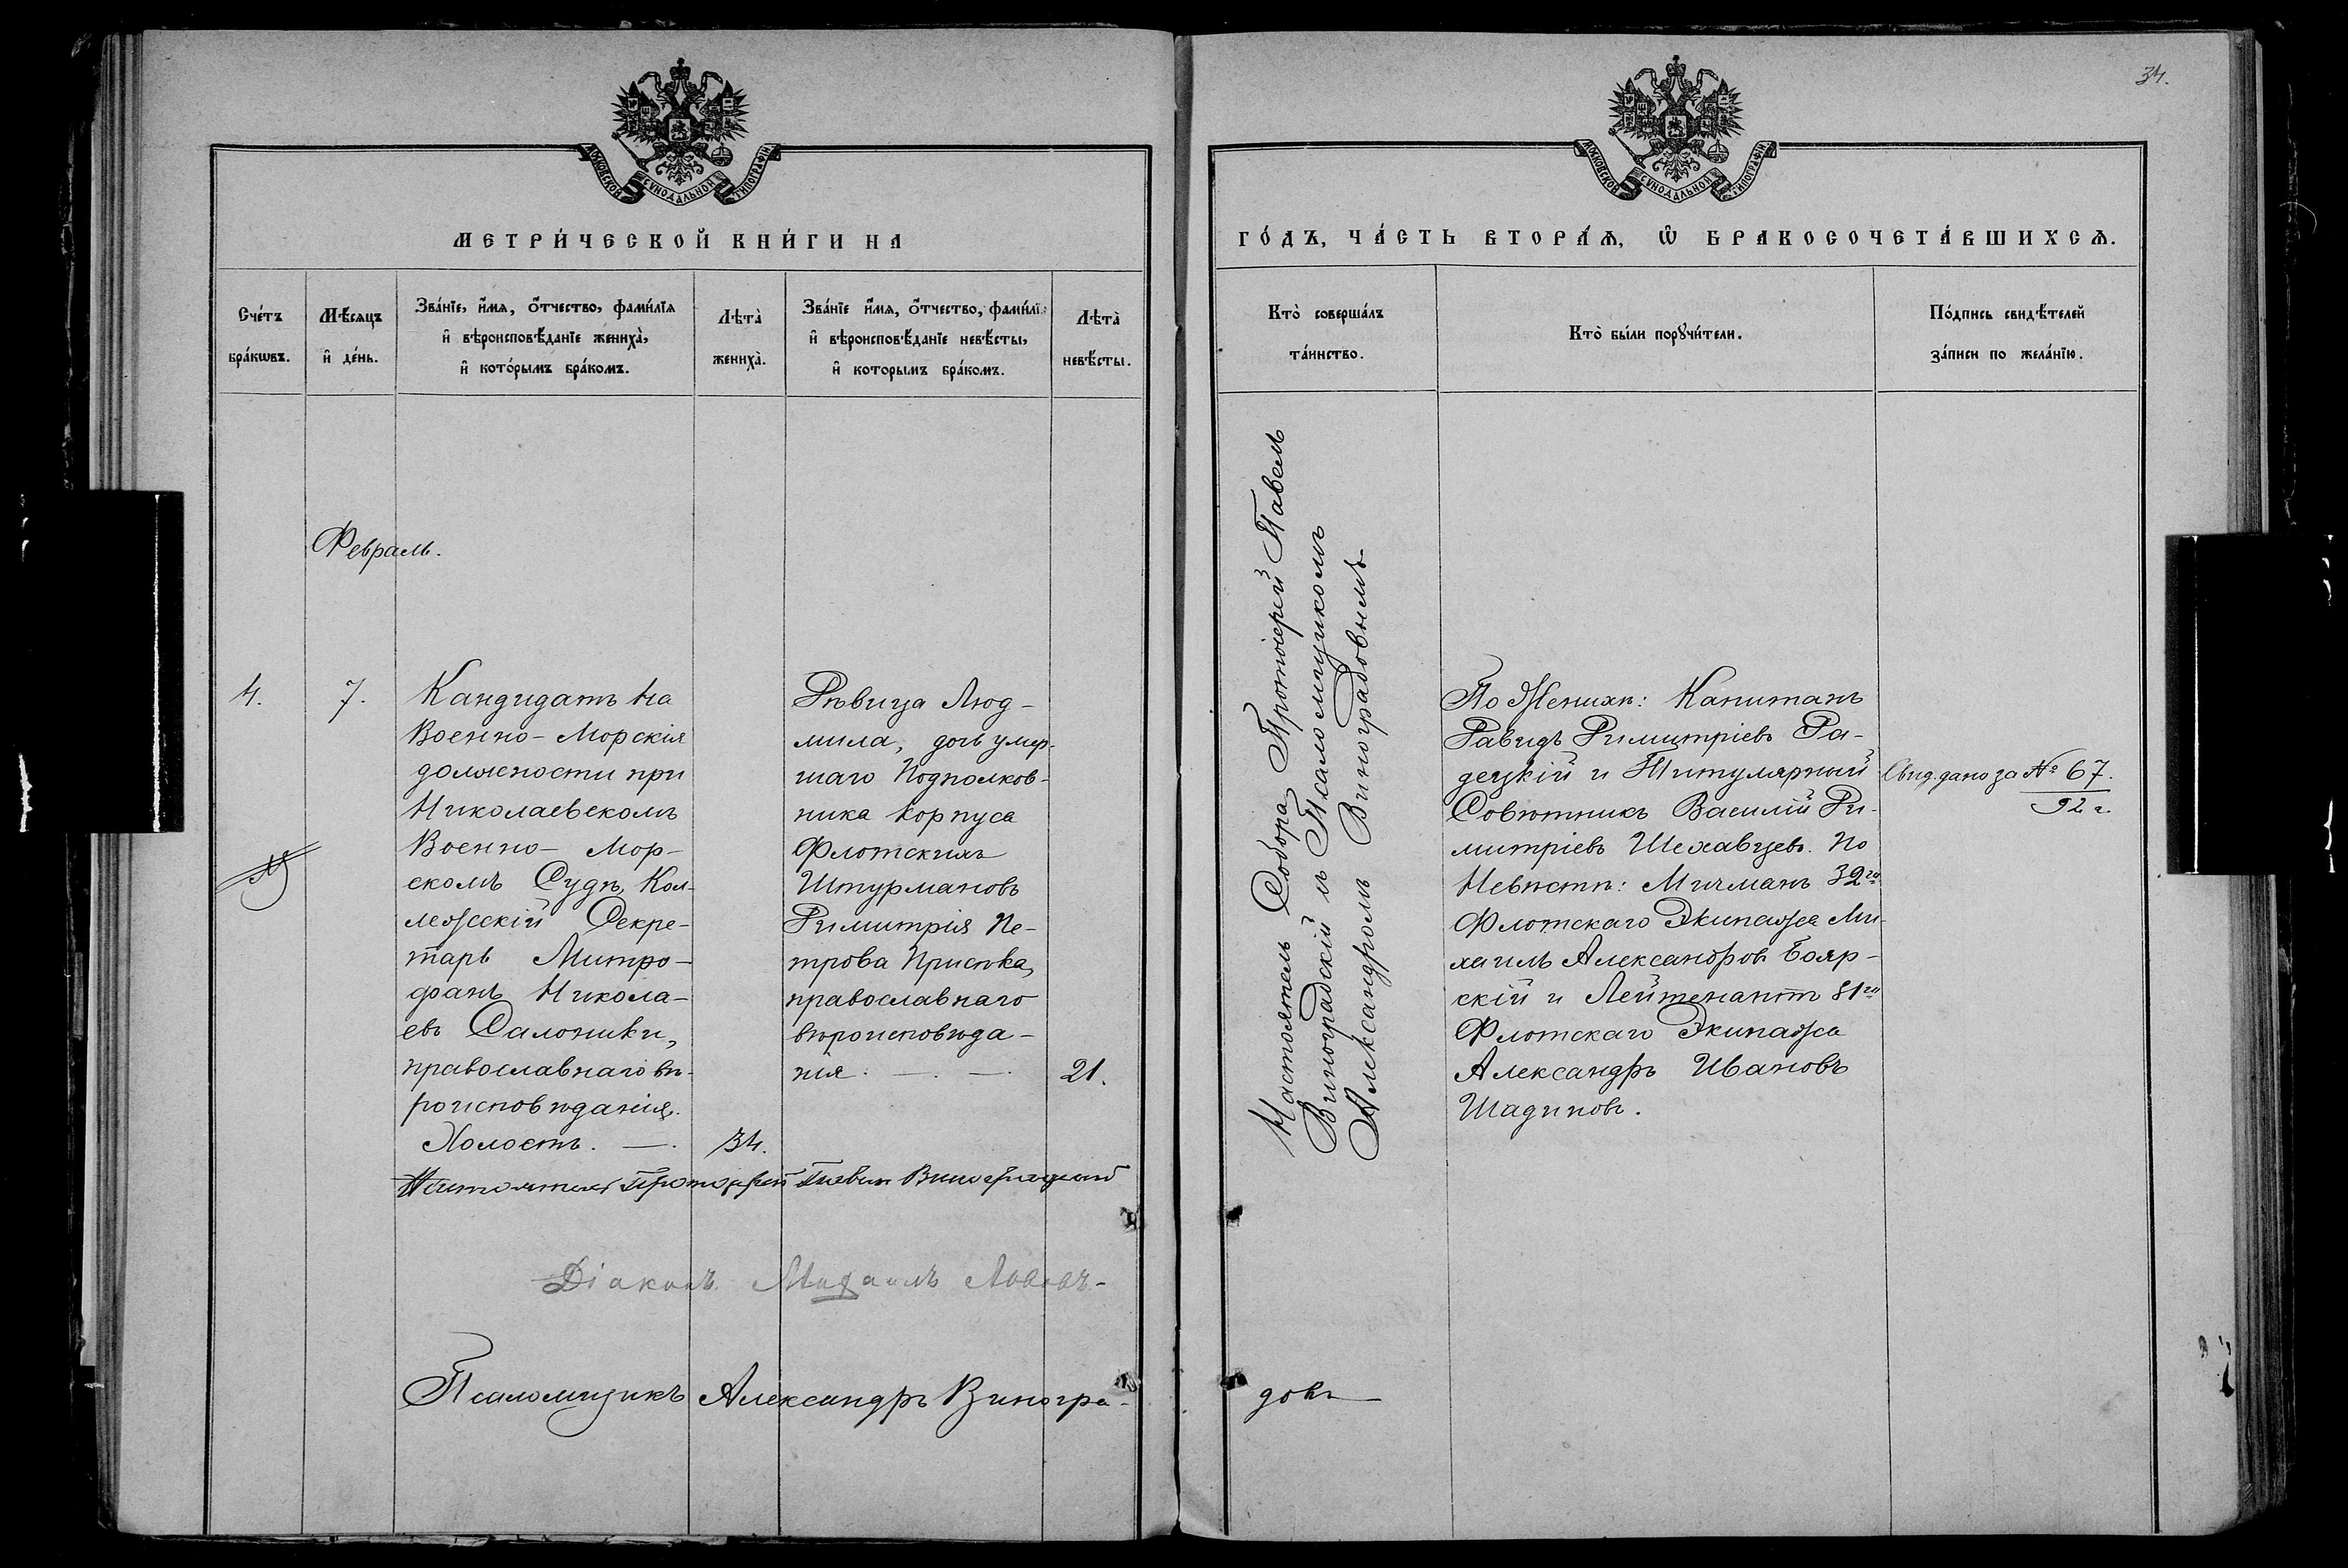 34.
МОСКОВСКОЙ СѴНОДАЛЬНОЙ ТИПОГРАФІИ
МОСКОВСКОЙ СѴНОДАЛЬНОЙ ТИПОГРАФІИ
МЕТРИ́ЧЕСКОЙ КНИ́ГИ НА
ГО́ДЪ, ЧА́СТЬ ВТОРА́Ѧ, Ѡ҆ БРАКОСОЧЕТА́ВШИХСѦ.
Сче́тъ
бра́кѡвъ.
Мѣ́сѧцъ
и҆ де́нь.
Зва́нїе, и҆́мѧ, ѻ҆́тчество, фами́лїѧ
и҆ вѣроисповѣ́данїе жениха̀,
и҆ кото́рымъ бра́комъ.
Лѣта̀
жениха̀.
Зва́нїе и҆́мѧ, ѻ҆́тчество, фами́лїѧ
и҆ вѣроисповѣ́данїе невѣ́сты,
и҆ которымъ бра́комъ.
Лѣта̀
невѣ́сты.
Кто̀ соверша́лъ
та́инство.
Кто̀ бы́ли порꙋчи́тели.
По́дпись свидѣ́телей
за́писи по жела́нїю.
Февраль.
4.
7.
Кандидатъ на
Военно-Морскія
должности при
Николаевскомъ
Военно-Мор-
скомъ Судѣ, Кол-
лежскій Секре-
тарь Митро-
фанъ Никола-
евъ Салоники,
православнаго вѣ-
роисповѣданія.
Холостъ. —.
34.
Дѣвица Люд-
мила, дочь умер-
шаго Подполков-
ника Корпуса
Флотскихъ
Штурмановъ
Димитрія Пе-
трова Присѣка,
православнаго
вѣроисповѣда-
нія. —. —.
21.
Настоятель Собора Протоіерей Павелъ
Виноградскій и Псаломщикомъ
Александромъ Виноградовымъ.
По Женихѣ: Капитанъ
Давидъ Димитріевъ Ра-
децкій и Титулярный
Совѣтникъ Василій Ди-
митріевъ Шехавцевъ. По
Невѣстѣ: Мичманъ 32го
Флотскаго Экипажа Ми-
хаилъ Александровъ Бояр-
скій и Лейтенантъ 31го
Флотскаго Экипажа
Александръ Ивановъ
Шадиновъ.
Свид. дано за № 67.
92 г.
Настоятель Протоіерей Павелъ Виноградскій
Діаконъ Михаилъ
Псаломщикъ Александръ Виногра-
довъ